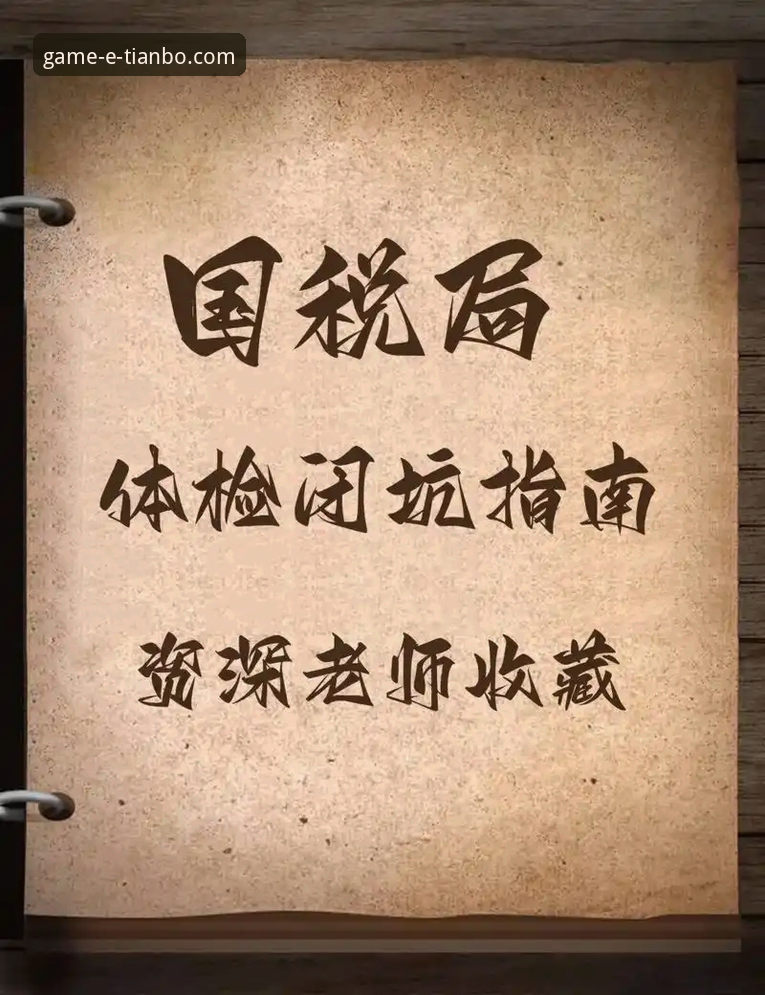 game-e-tianbo.com
国税局
体检闭坑指南
资深老师收藏